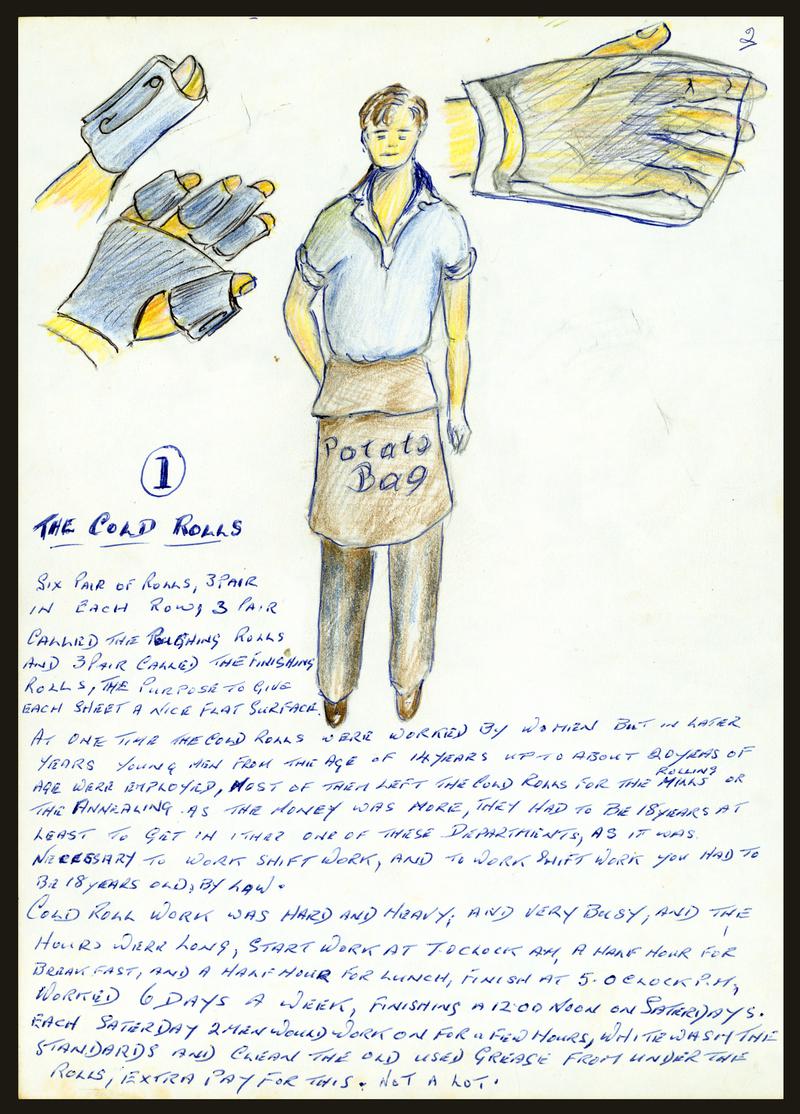 2
Potato
Bag
1
THE COLD ROLLS
SIX PAIR OF ROLLS, 3 PAIR
IN EACH ROW, 3 PAIR
CALLLED THE ROUGHING ROLLS
AND 3 PAIR CALLED THE FINISHING
ROLLS, THE PURPOSE TO GIVE
EACH SHEET A NICE FLAT SURFACE.
AT ONE TIME THE COLD ROLLS WERE WORKED BY WOMEN BUT IN LATER
YEARS YOUNG MEN FROM THE AGE OF 14 YEARS UP TO ABOUT 20 YEARS OF
AGE WERE EMPLOYED, MOST OF THEM LEFT THE COLD ROLLS FOR THE ROLLING MILLS OR
THE ANNEALING. AS THE MONEY WAS MORE, THEY HAD TO BE 18 YEARS AT
LEAST TO GET IN ITHER ONE OF THESE DEPARTMENTS, AS IT WAS
NECESSARY TO WORK SHIFT WORK, AND TO WORK SHIFT WORK YOU HAD TO
BE 18 YEARS OLD, BY LAW.
COLD ROLL WORK WAS HARD AND HEAVY, AND VERY BUSY, AND THE
HOURS WERE LONG, START WORK AT 7.OCLOCK AM, A HALF HOUR FOR
BREAKFAST, AND A HALF HOUR FOR LUNCH, FINISH AT 5.OCLOCK P.M,
WORKED 6 DAYS A WEEK, FINISHING A 12.00 NOON ON SATERDAYS.
EACH SATERDAY 2 MEN WOULD WORK ON FOR A FEW HOURS, WHITEWASH THE
STANDARDS AND CLEAN THE OLD USED GREASE FROM UNDER THE
ROLLS, EXTRA PAY FOR THIS. NOT A LOT.